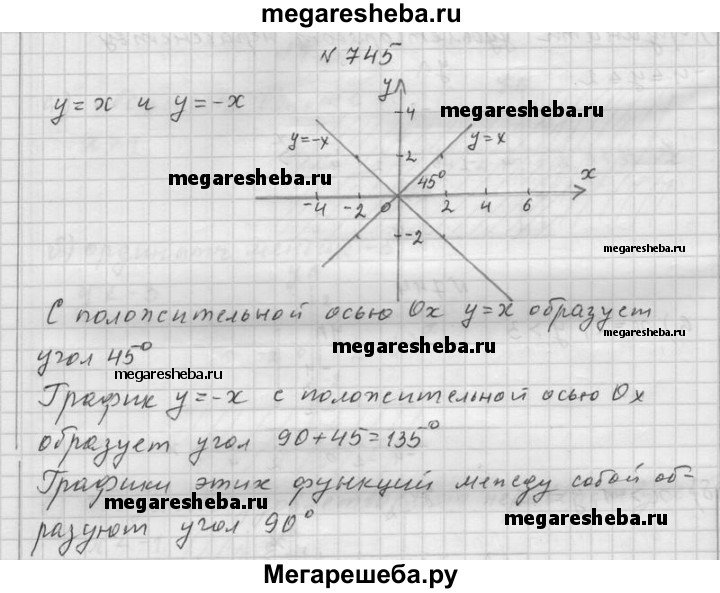 megaresheba.ru
N 745
y = x и y = -x
y
4
megaresheba.ru
y=-x
y=x
2
megaresheba.ru
45°
x
-4 -2 0 2 4 6
-2
megaresheba.ru
С положительной осью Ox y=x образует
megaresheba.ru
megaresheba.ru
угол 45°
megaresheba.ru
График y=-x с положительной осью Ox
образует угол 90+45=135°
Графики этих функций между собой об-
megaresheba.ru
megaresheba.ru
разуют угол 90°
Мегарешеба.ру